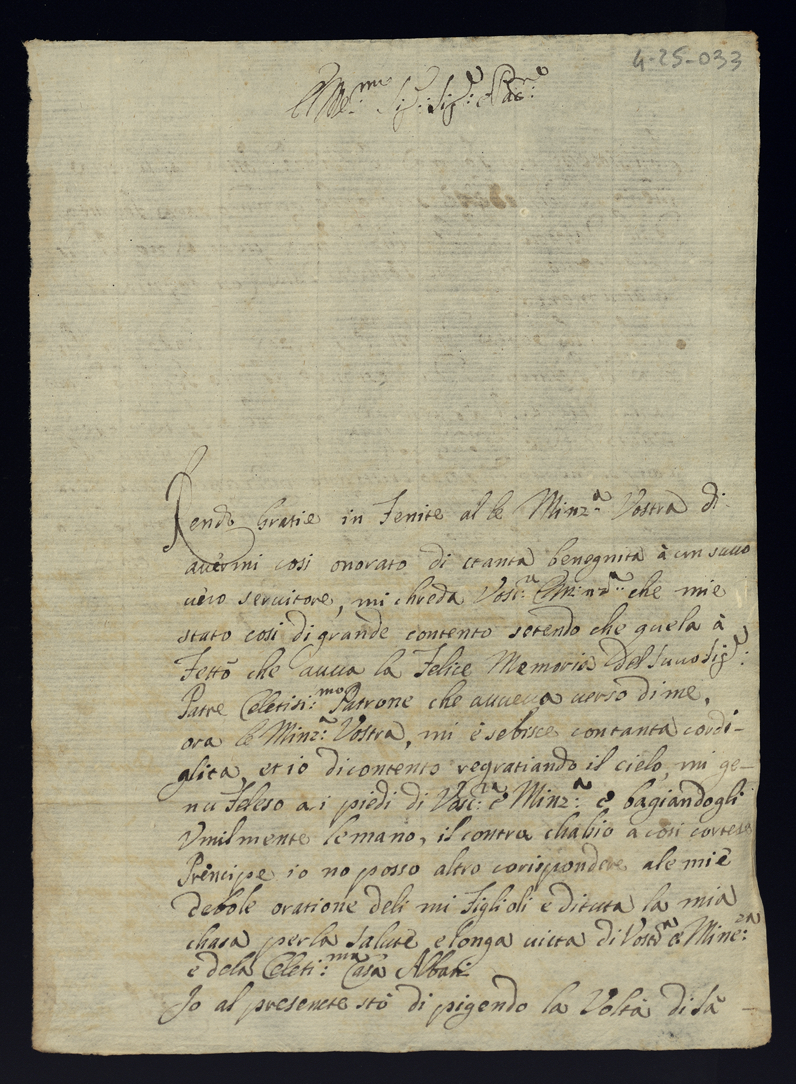 4-25-033
E Me:mo Sig: Sig: e Pac:ne
Rendo Gratie in Fenite al e Minz:a Vostra di
avermi cosi onorato di ctanta benegnita à un suuo
vero servitore, mi chreda Vost:a Eminz:a che mie
stato cosi di grande contento sotendo che quela à
Fettò che auua la Felice Memoria del Suuo Sig:
Patre Celetisi:mo Patrone che auueva verso di me,
ora le Minz:a Vostra, mi è sebisce contanta cordi-
glita, et io di contento regratiando il cielo, mi ge-
nu Feleso a i piedi di Vost:a e Minz:a e bagiandogli
Vmilmente lemano, il contra chabio a cosi cortese
Prencipe io no posso altro corispondere ale mie
debole oratione deli mi Figlioli e dituta la mia
chasa per la salute e longa uicta di Vost:a e Mine:za
e dela Celeti:ma Casa Albani
Jo al presencte stò di pigendo la Volta di Sã -